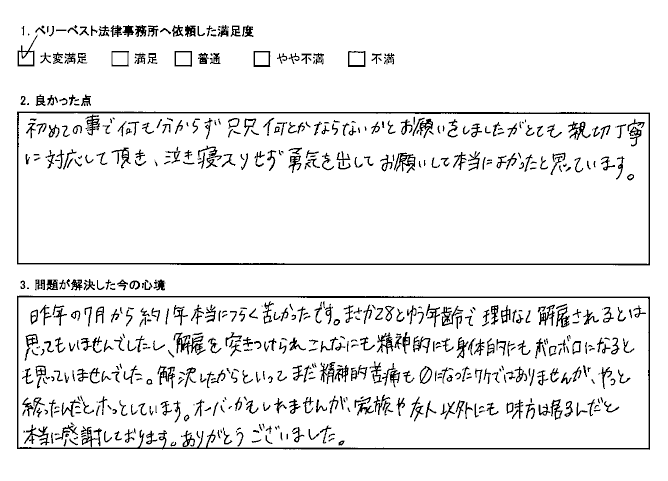 1. ベリーベスト法律事務所へ依頼した満足度
大変満足 満足 普通 やや不満 不満
2. 良かった点
初めての事で何も分からず只只何とかならないかとお願いをしましたがとても親切丁寧
に対応して頂き、泣き寝入りせず勇気を出してお願いして本当によかったと思っています。
3. 問題が解決した今の心境
昨年の7月から約1年本当につらく苦しかったです。まさか28とゆう年齢で理由なく解雇されるとは
思ってもいませんでしたし、解雇を突きつけられこんなにも精神的にも身体的にもボロボロになると
も思っていませんでした。解決したからといってまだ精神的苦痛も0になったワケではありませんが、やっと
終ったんだとホッとしています。オーバーかもしれませんが、家族や友人以外にも味方は居るんだと
本当に感謝しております。ありがとうございました。